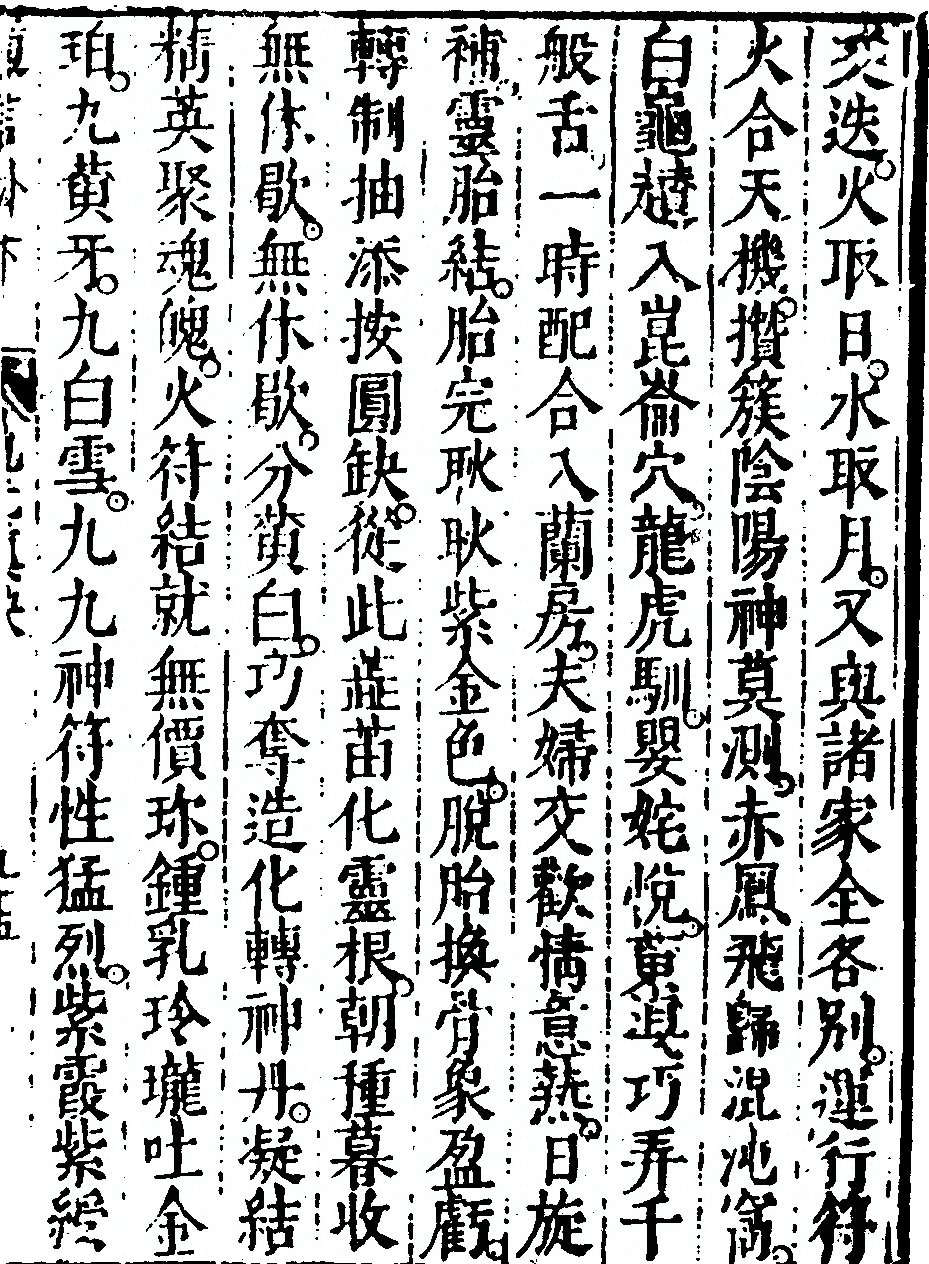 烹迭火取日水取月又與諸家全各别運行符
火合天機攢簇陰陽神莫測赤鳳飛歸混沌窩
白龜趕入崑崙穴龍虎馴嬰姹悅黄漢巧弄千
般舌一時配合入蘭房夫婦交歡情意爇日旋
補靈胎結胎完耿耿紫金色脫胎換骨象盈虧
轉制抽添按圓缺從此蓝苗化靈根朝種暮收
無休歇無休歇分黄白巧奪造化轉神丹凝結
精英聚魂魄火符結就無價珎鍾乳玲瓏吐金
珀九黄牙九白雪九九神符性猛烈紫霞紫綬